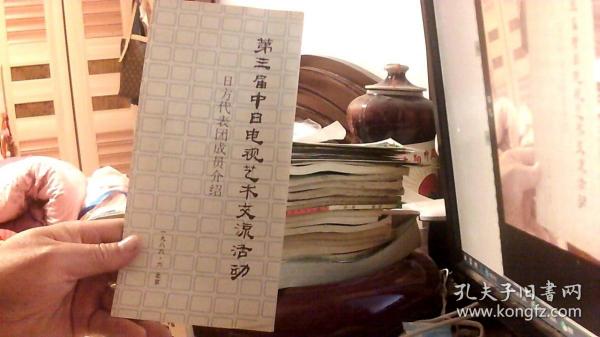 第三届中日电视艺术交流活动
日方代表团成员介绍
一九八六·六 北京
孔夫子旧書网
www.kongfz.com